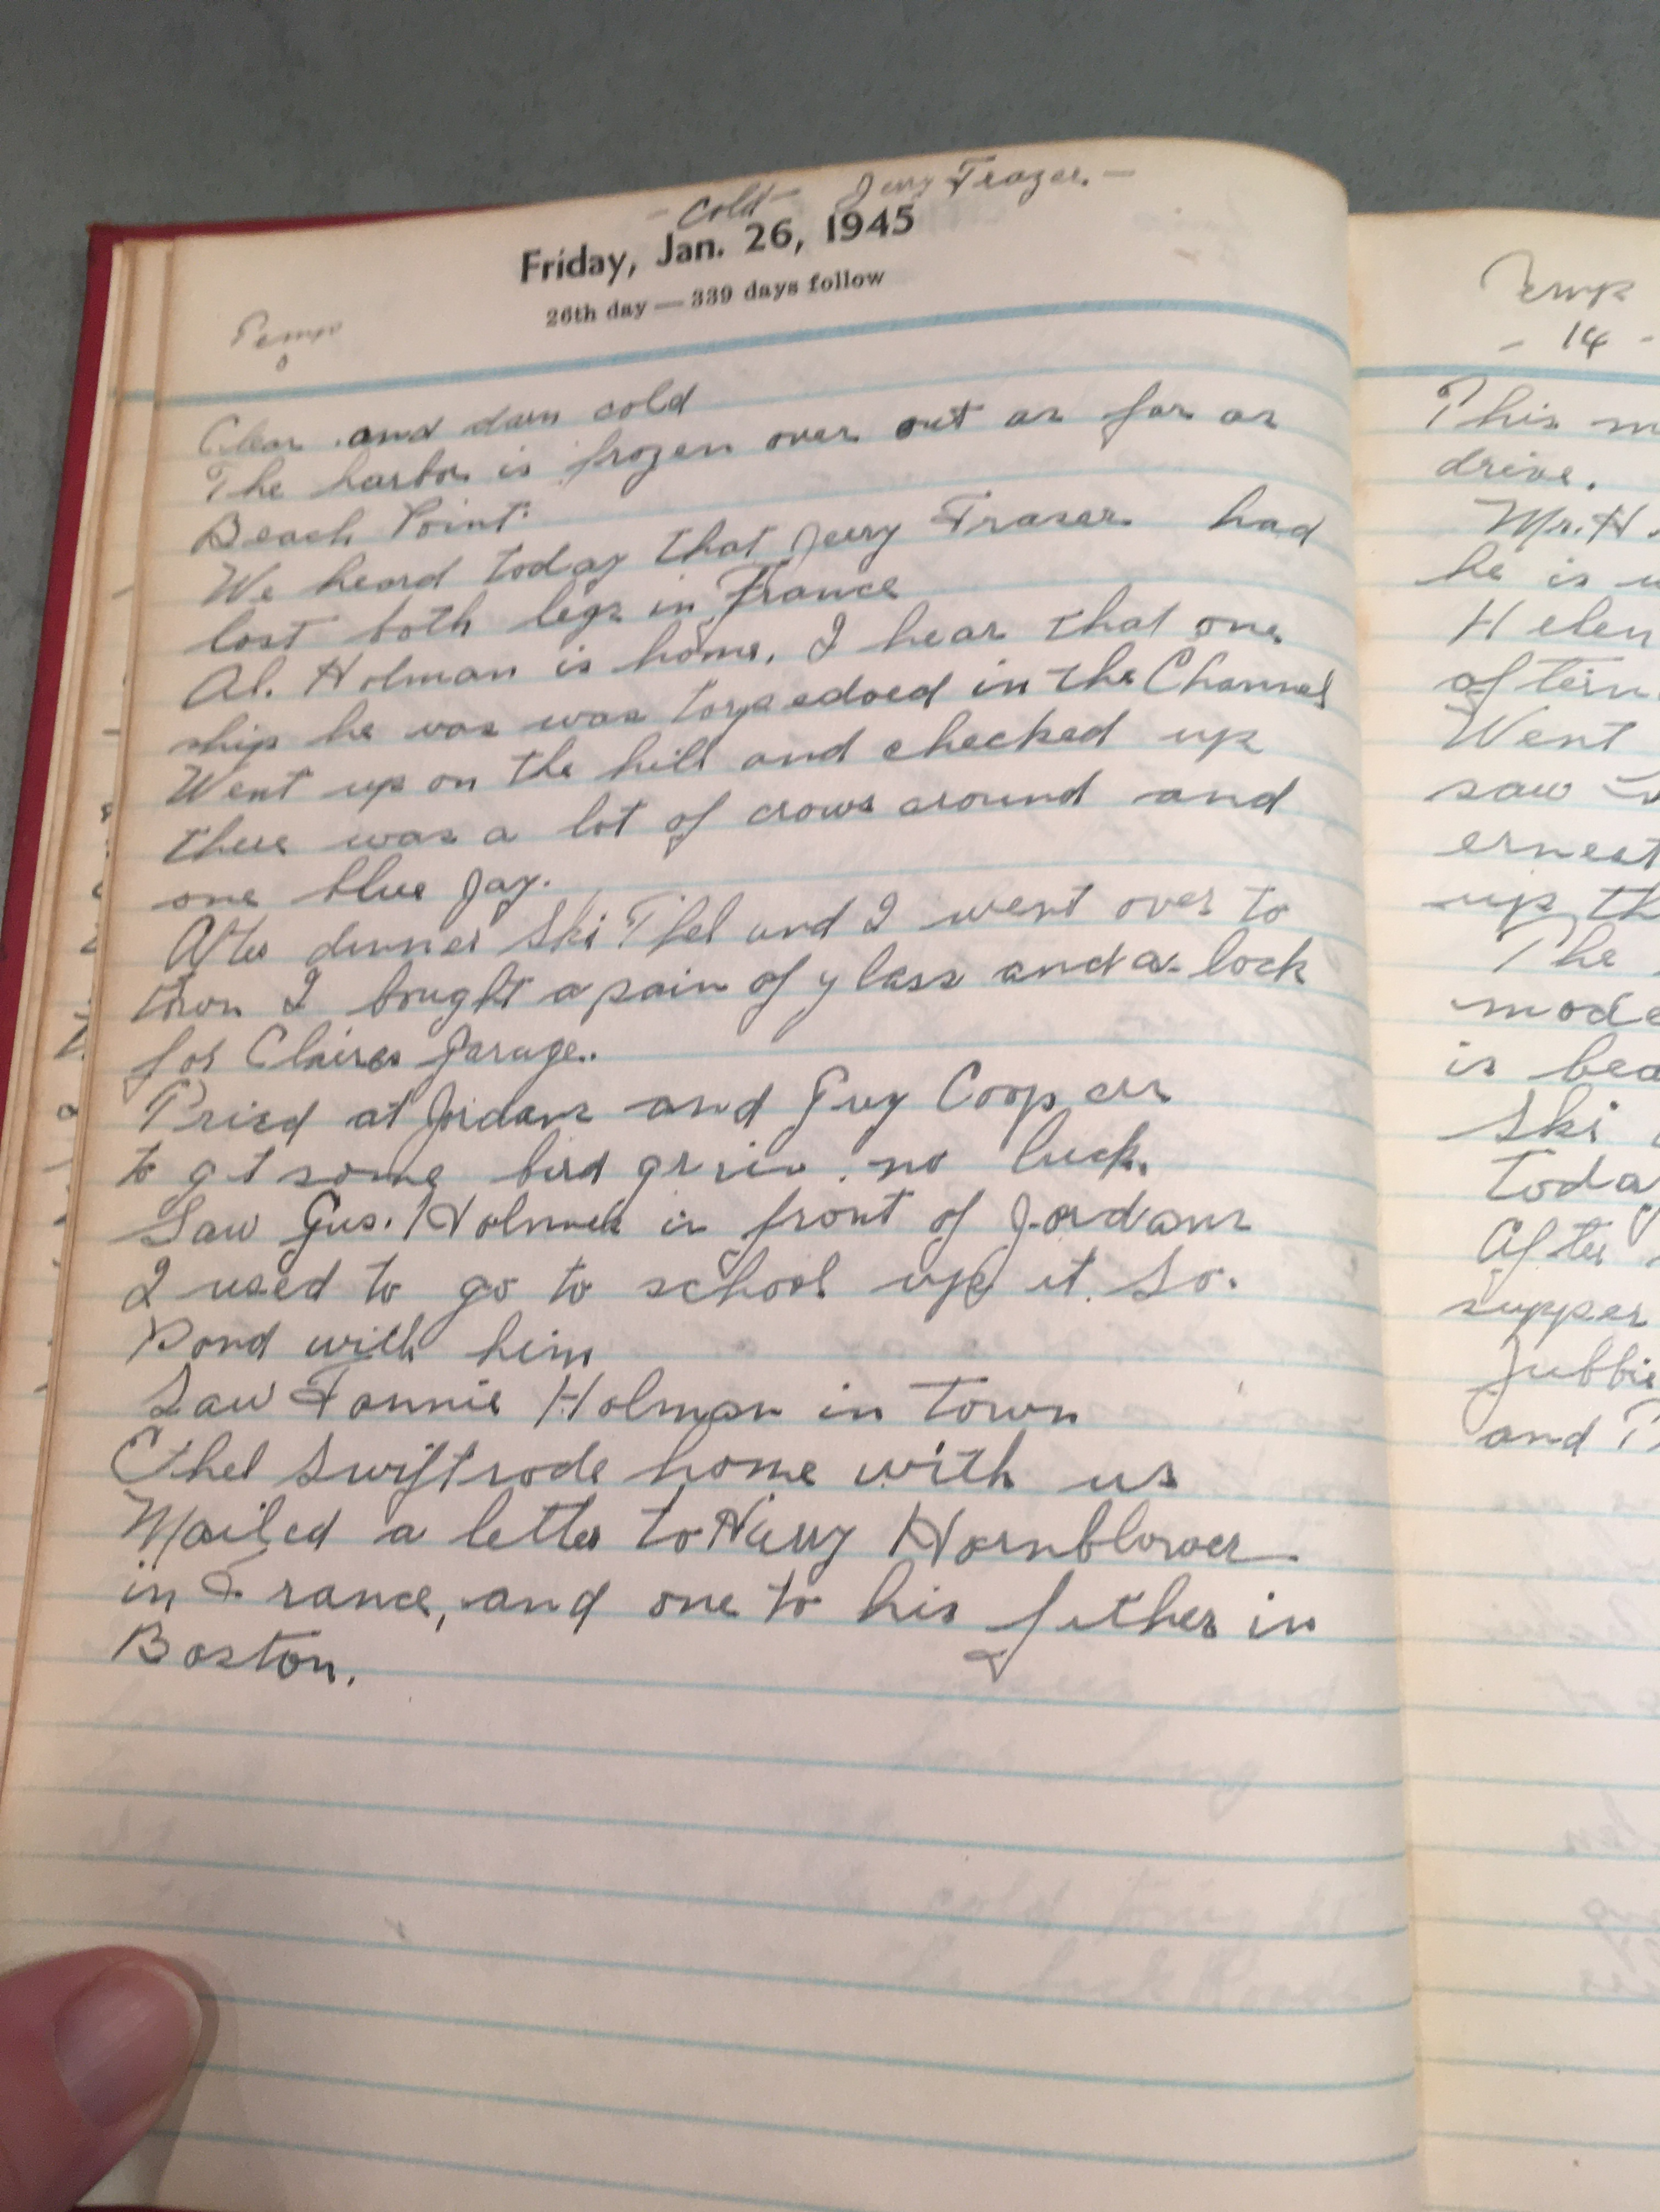 - Cold - Jerry Frazer. -
Friday, Jan. 26, 1945
26th day — 339 days follow
Temp
0
Clear and darn cold
The harbor is frozen over out as far as
Beach Point.
We heard today that Jerry Fraser had
lost both legs in France
Al. Holman is home, I hear that one
ship he was was torpedoed in the Channel
Went up on the hill and checked up
there was a lot of crows around and
one blue Jay.
After dinner Ski Thel and I went over to
town I bought a pain of glass and a lock
for Claires garage.
Tried at Jordans and Guy Coopers
to get some bird grain. no luck.
Saw Gus. Holmes in front of Jordans
I used to go to school up at So.
Pond with him
Saw Fannie Holman in town
Ethel Swift rode home with us
Mailed a letter to Harry Hornblower
in France, and one to his father in
Boston.
Temp
- 14 -
This
drive.
Mr. H.
he is
Helen
Went
saw
ernest
up
The
is
Ski
After
supper
and